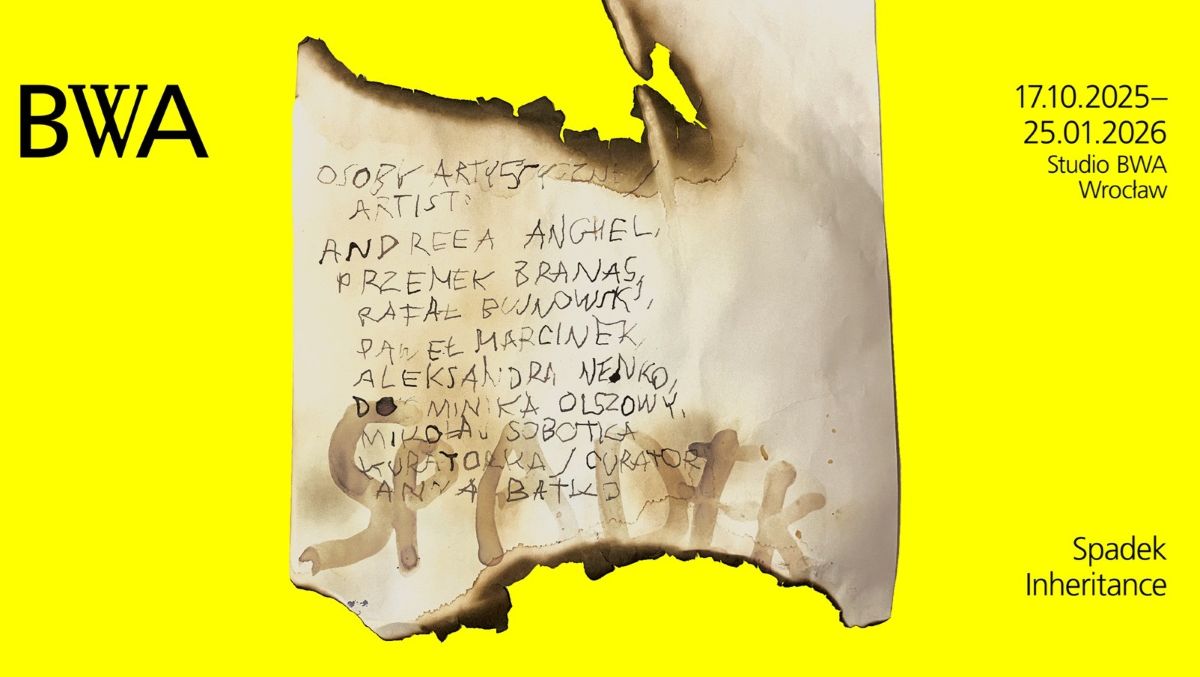 BWA
17.10.2025–
25.01.2026
Studio BWA
Wrocław
OSOBY ARTYSTYCZNE /
ARTISTS
ANDREEA ANGHEL,
PRZEMEK BRANAS,
RAFAŁ BUJNOWSKI,
PAWEŁ MARCINEK,
ALEKSANDRA NENKO,
DOMINIKA OLSZOWY,
MIKOŁAJ SOBOTKA
KURATORKA / CURATOR
ANNA BATKO
SPADEK
Spadek
Inheritance